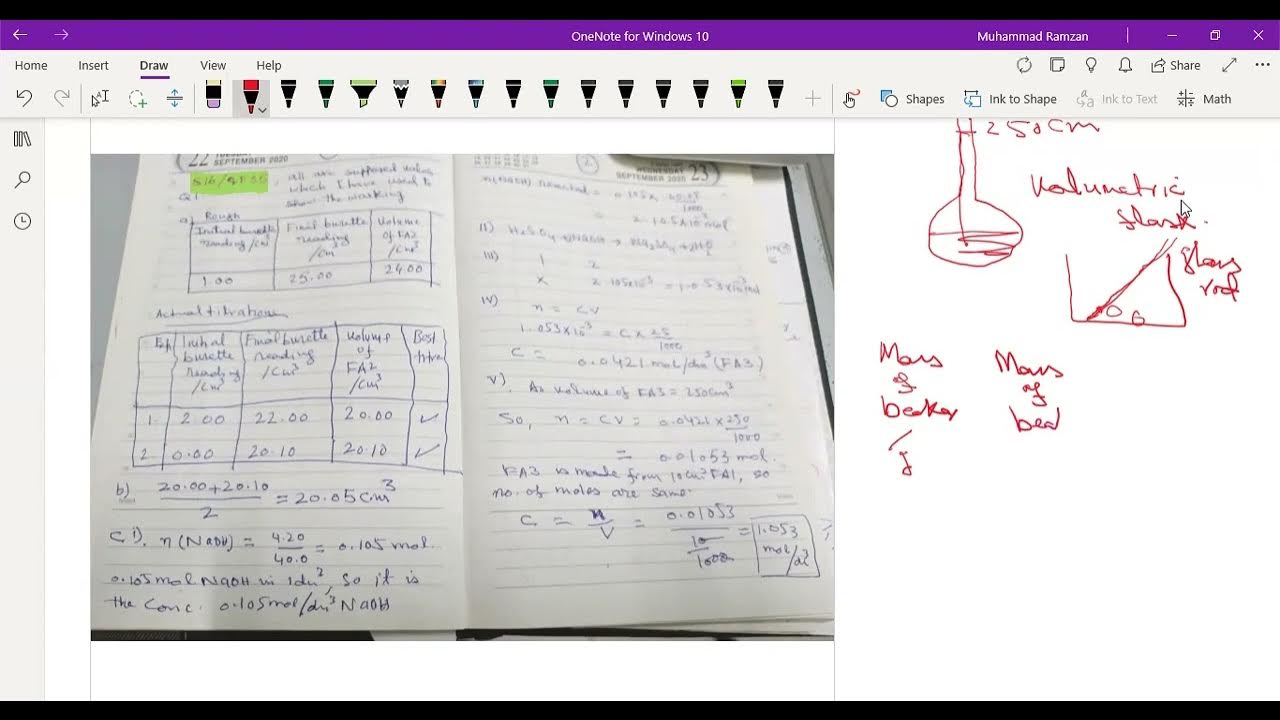 OneNote for Windows 10
Muhammad Ramzan
Home
Insert
Draw
View
Help
Share
Shapes
Ink to Shape
Ink to Text
Math
22
SEPTEMBER 2020
S16/
all are supposed
which I have used to
show the marking
Q1
a)
Rough
Initial burette
reading/cm
Final burette
reading
/cm
Volume
of FA2
/cm³
1.00
25.00
24.00
Actual titrations
Exp
Initial
burette
reading
/cm³
Final burette
reading
/cm³
Volume
of
FA2
/cm³
Best
1.
2.00
22.00
20.00
✓
2
0.00
20.10
20.10
✓
b) 20.00+20.10
2
= 20.05cm³
c i). n(NaOH) = 4.20
40.0
= 0.105 mol.
0.105mol NaOH in 1dm³, so it is
the conc. 0.105mol/dm³ NaOH
2
WEDNESDAY
SEPTEMBER 2020
23
n(NaOH) = 0.105 x
1000
mol
II)
III) 1 2
x
IV) n = CV
1.053x10⁻³ = C x 25
1000
C = 0.0421 mol/dm³ (FA3)
V) As volume of FA3 = 250cm³
So, n = CV = 0.0421 x 250
1000
= 0.01053 mol.
FA3 is made from 10cm³ FA1, so
no. of moles are same.
C = n
V
= 0.01053
10
1000
= 1.053
mol/
250cm
Volumetric
flask.
glass
rod
Mass
of
beaker
Mass
of